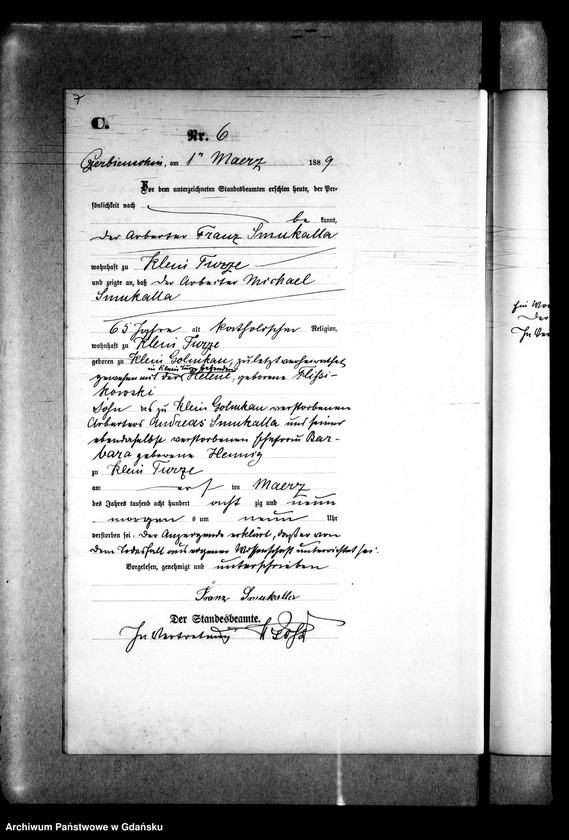 7
C.
Nr. 6
Czerbienschin, am 1ten Maerz 1889
Vor dem unterzeichneten Standesbeamten erschien heute, der Per-
sönlichkeit nach
be kannt,
der Arbeiter Franz Smukalla
wohnhaft zu Klein Turze
und zeigte an, daß der Arbeiter Michael
Smukalla
65 Jahre alt katholischer Religion,
wohnhaft zu Klein Turze
geboren zu Klein Golmkau, zuletzt verheirathet
in Klein Turze
gewesen mit der Helene, geborene
kowski
Sohn des zu Klein Golmkau verstorbenen
Arbeiters Andreas Smukalla und seiner
ebendaselbst verstorbenen Ehefrau Bar-
bara geborene Hennig
zu Klein Turze
am ersten Maerz
des Jahres tausend acht hundert acht zig und neun
morgens um neun Uhr
verstorben sei. Der Anzeigende erklärt, daß er von
dem Todesfall aus eigener Wissenschaft unterrichtet sei.
Vorgelesen, genehmigt und unterschrieben
Franz Smukalla
Der Standesbeamte.
In Vertretung
In Ver
Archiwum Państwowe w Gdańsku